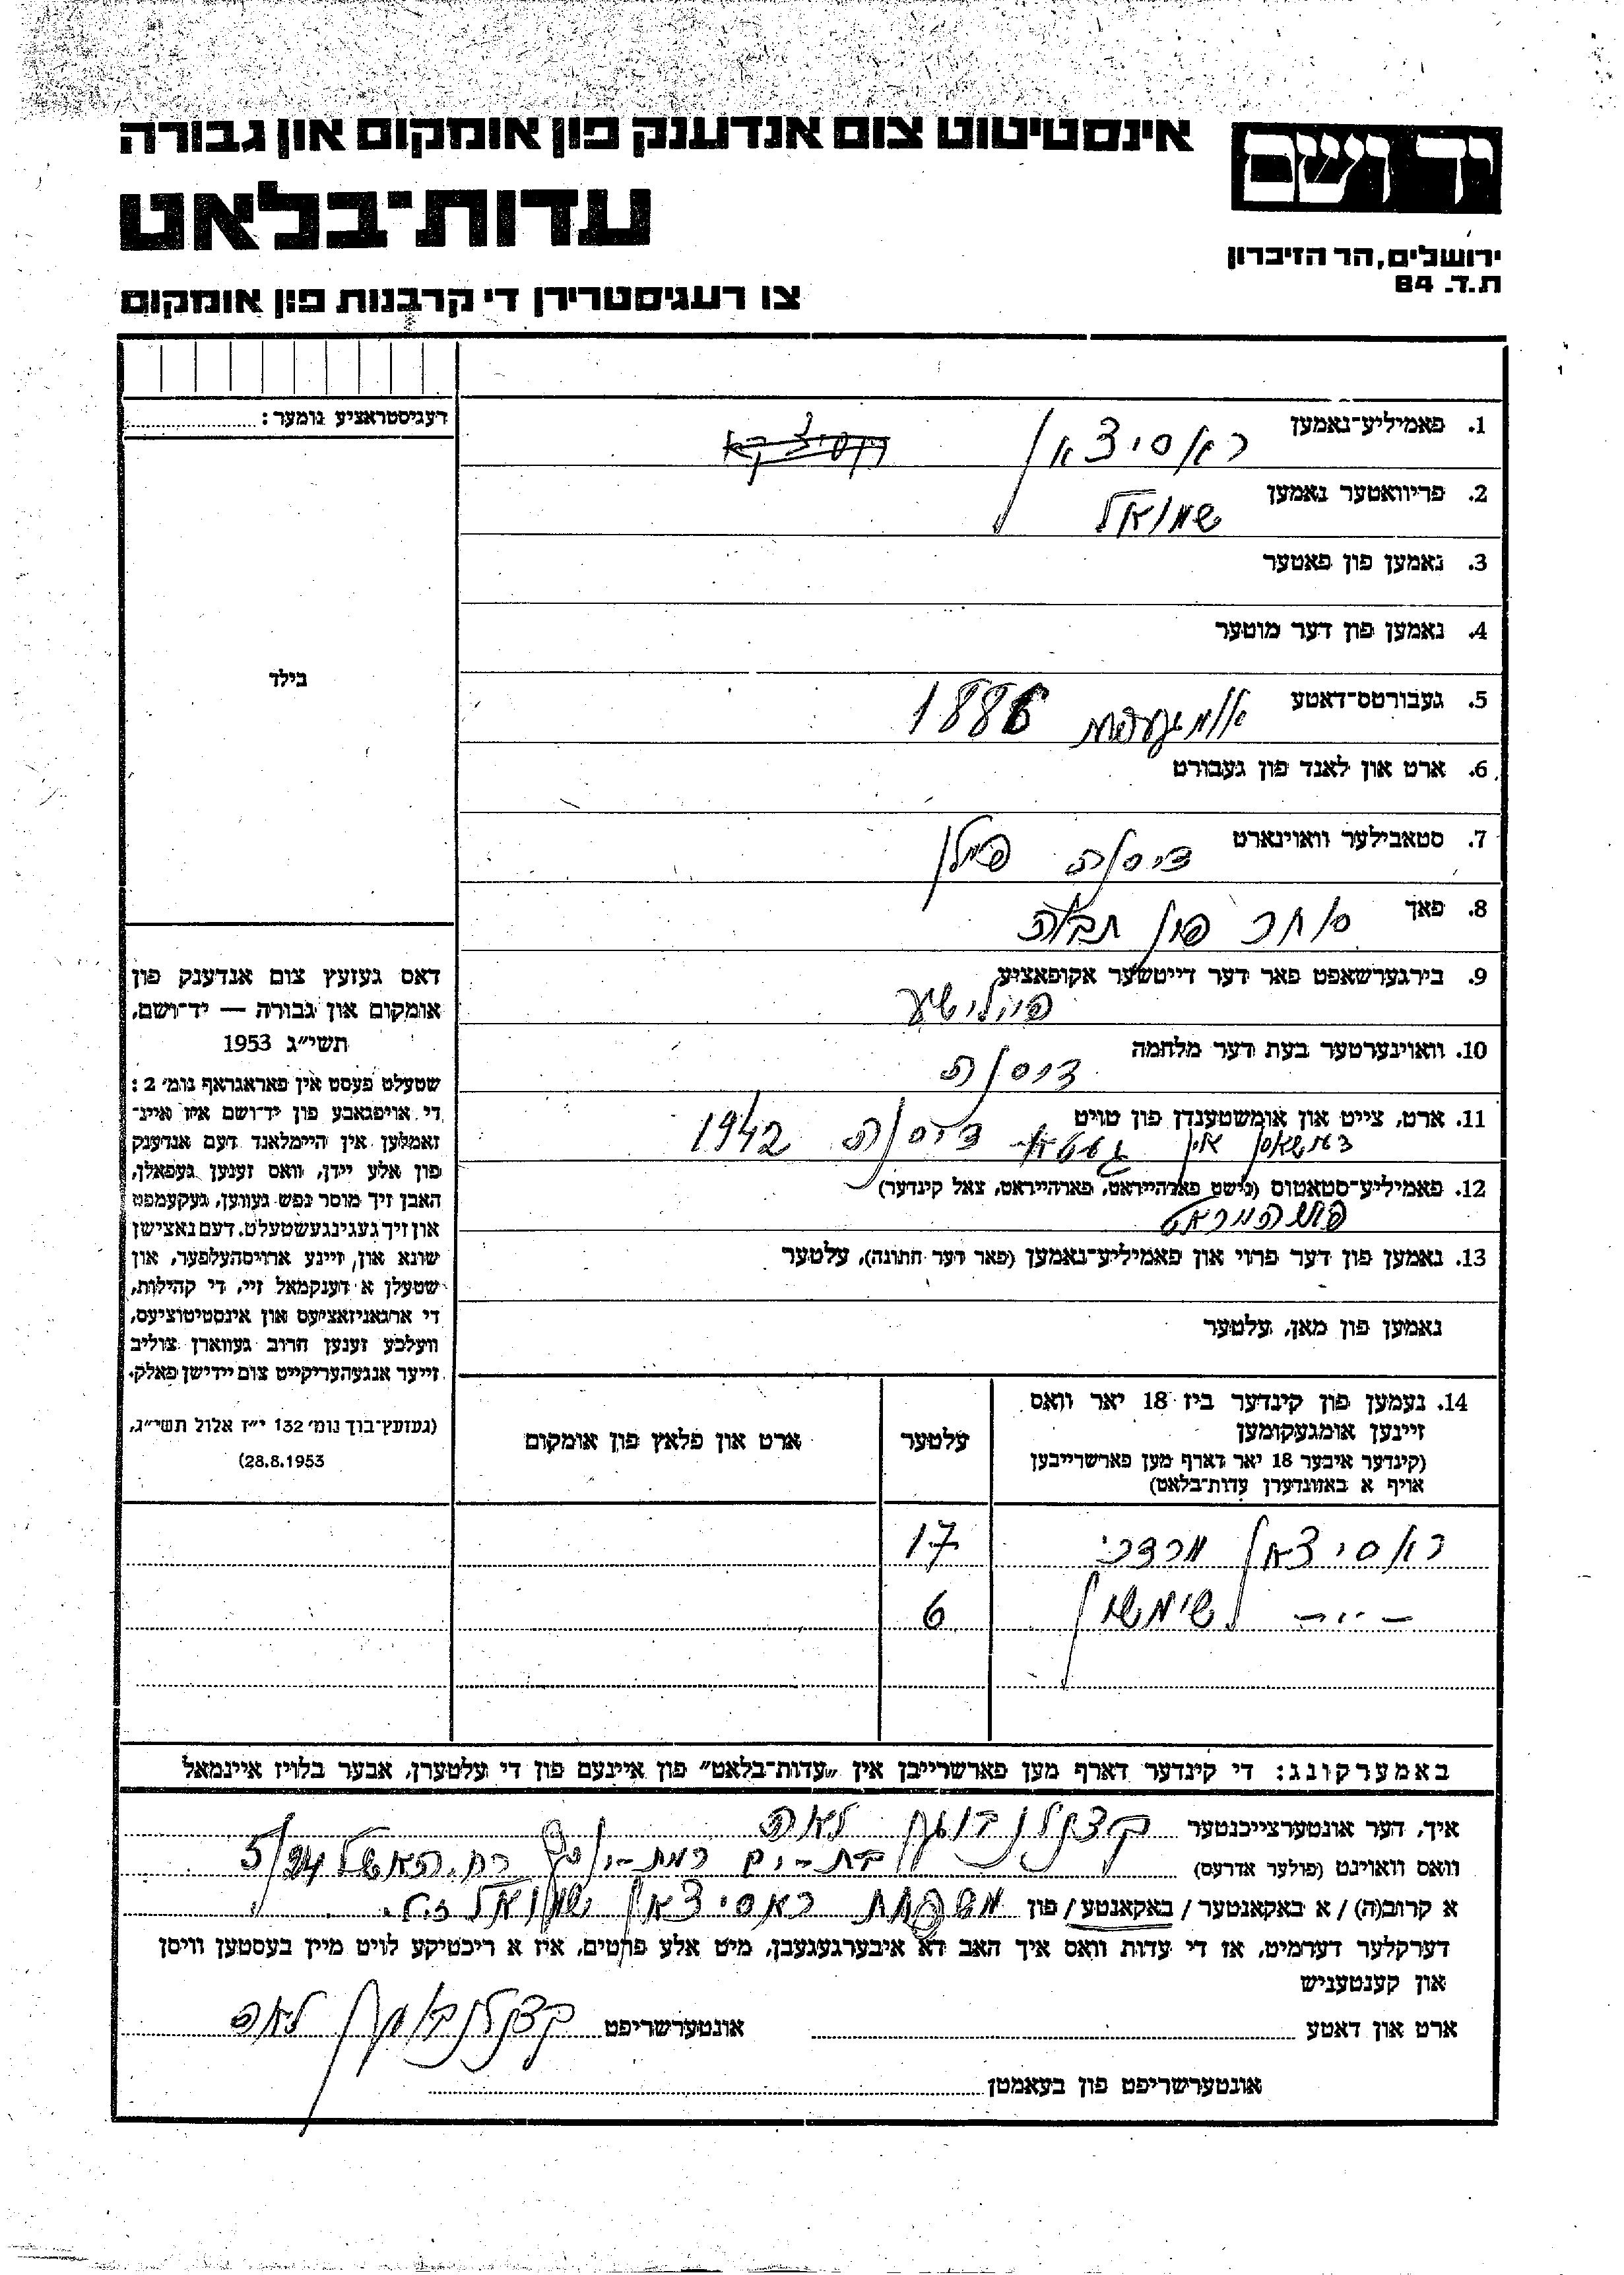 אינסטיטוט צום אנדענק פון אומקום און גבורה
יד ושם
עדות־בלאט
ירושלים, הר הזיכרון
ת.ד. 84
צו רעגיסטרירן די קרבנות פון אומקום
רעגיסטראציע נומער:
1. פאמיליע־נאמען ראסיצאן
2. פריוואטער נאמען שמואל
3. נאמען פון פאטער
4. נאמען פון דער מוטער
5. געבורטס־דאטע 1886
6. ארט און לאנד פון געבורט
7. סטאבילער וואוינארט דיסנה פולן
8. פאך סוחר פון תבואה
9. בירגערשאפט פאר דער דייטשער אקופאציע
פוילישע
10. וואוינערטער בעת דער מלחמה דיסנה
11. ארט, צייט און אומשטענדן פון טויט
דערשאסן אין געטא דיסנה 1942
12. פאמיליע־סטאטוס (נישט פארהייראט, פארהייראט, צאל קינדער)
13. נאמען פון דער פרוי און פאמיליע־נאמען (פאר דער חתונה), עלטער
נאמען פון מאן, עלטער
בילד
דאס געזעץ צום אנדענק פון
אומקום און גבורה — יד־ושם,
תשי״ג 1953
שטעלט פעסט אין פאראגראף נומ׳ 2:
די אויפגאבע פון יד־ושם איז איינ־
זאמלען אין היימלאנד דעם אנדענק
פון אלע יידן, וואס זענען געפאלן,
האבן זיך מוסר נפש געווען, געקעמפט
און זיך געגינגעשטעלט. דעם נאצישן
שונא און, זיינע ארויסהעלפער, און
שטעלן א דענקמאל זיי, די קהילות,
די ארגאניזאציעס און אינסטיטוציעס,
וועלכע זענען חרוב געווארן צוליב
זייער אנגעהעריקייט צום יידישן פאלק.
(געזעץ־בוך נומ׳ 132 י״ז אלול תשי״ג,
28.8.1953)
14. נעמען פון קינדער ביז 18 יאר וואס
זיינען אומגעקומען
(קינדער איבער 18 יאר דארף מען פארשרייבן
אויף א באזונדערן עדות־בלאט)
עלטער
ארט און פלאץ פון אומקום
ראסיצאן מרדכי 17
— ״ — שימשון 6
באמערקונג: די קינדער דארף מען פארשרייבן אין „עדות־בלאט״ פון איינעם פון די עלטערן, אבער בלויז איינמאל
איך, דער אונטערצייכנטער קצקלנבוגן לאה
וואס וואוינט (פולער אדרעס) בת-ים רמת-יוסף רח. האשל 5/24
א קרוב(ה) / א באקאנטער / באקאנטע / פון משפחת ראסיצאן שמואל ז״ל.
דערקלער דערמיט, אז די עדות וואס איך האב דא איבערגעגעבן, מיט אלע פרטים, איז א ריכטיקע לויט מיין בעסטען וויסן
און קענטעניש
ארט און דאטע אונטערשריפט לאה
אונטערשריפט פון בעאמטן